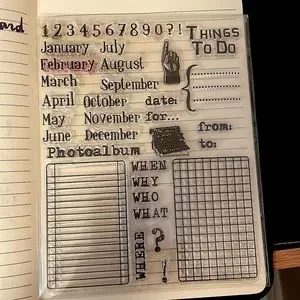 1234567890?!
THINGS
TO DO
January July
February August
March September
April October date:
May November for...
June December from:
Photoalbum to:
WHEN
WHY
WHO
WHAT
WHERE ?
!